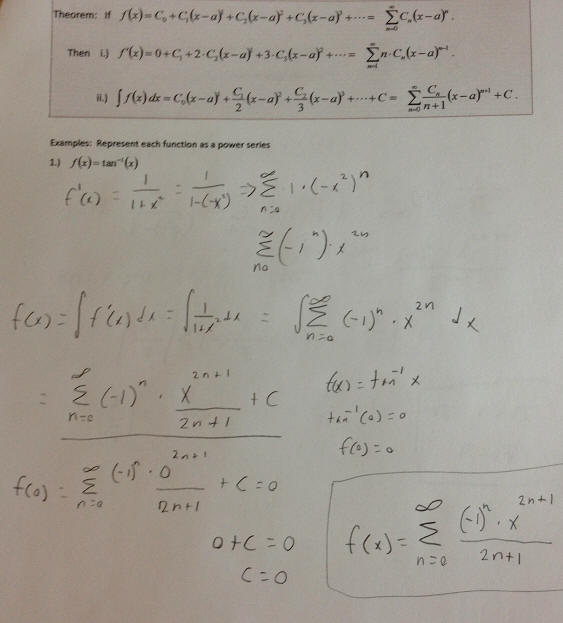 Theorem: If f(x) = C₀ + C₁(x−a)¹ + C₂(x−a)² + C₃(x−a)³ + ⋯ = ∑_{n=0}^{∞} Cₙ(x−a)ⁿ.
Then i.) f'(x) = 0 + C₁ + 2·C₂(x−a)¹ + 3·C₃(x−a)² + ⋯ = ∑_{n=1}^{∞} n·Cₙ(x−a)ⁿ⁻¹.
ii.) ∫f(x)dx = C₀(x−a)¹ + C₁/2(x−a)² + C₂/3(x−a)³ + ⋯ + C = ∑_{n=0}^{∞} Cₙ/(n+1)(x−a)ⁿ⁺¹ + C.
Examples: Represent each function as a power series
1.) f(x) = tan⁻¹(x)
f'(x) = 1/(1+x²) = 1/(1−(−x²)) ⇒ ∑_{n=0}^{∞} 1·(−x²)ⁿ
∑_{n=0}^{∞} (−1ⁿ)·x²ⁿ
f(x) = ∫f'(x)dx = ∫ 1/(1+x²) dx = ∫ ∑_{n=0}^{∞} (−1)ⁿ · x²ⁿ dx
= ∑_{n=0}^{∞} (−1)ⁿ · x²ⁿ⁺¹/(2n+1) + C
f(x) = tan⁻¹ x
tan⁻¹(0) = 0
f(0) = 0
f(0) = ∑_{n=0}^{∞} (−1)ⁿ · 0²ⁿ⁺¹/(2n+1) + C = 0
0 + C = 0
C = 0
f(x) = ∑_{n=0}^{∞} (−1)ⁿ · x²ⁿ⁺¹/(2n+1)